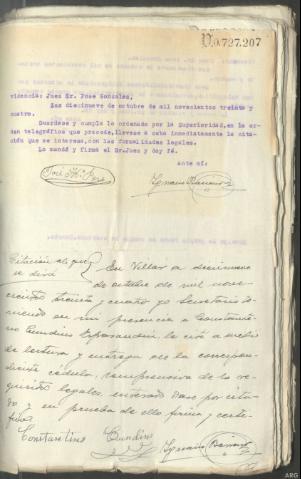 V.0.727.207
videncia: Juez Sr. Pose Gonzalez,
Las diecinueve de octubre de mil novecientos treinta y
cuatro.
Guardese y cumpla lo ordenado por la Superioridad, en la
telegráfica que precede, llevese a cabo inmediatamente la
ción que se interesa, con las formalidades legales.
Lo mandó y firma el Sr. Juez y doy fé.
Ante mí.
José Mª Pose
Ignacio
Citación al que
se dirá
En Villar a diecinueve
de octubre de mil nove-
cientos treinta y cuatro yo Secretario
en mi presencia a Constanti-
no Cundins la cité a medio
de lectura y entrega de la correspon-
diente cédula comprensiva de los re-
quisitos legales enterado
y en prueba de ello firma y certi-
fico
Constantino Cundins
Ignacio
ARG